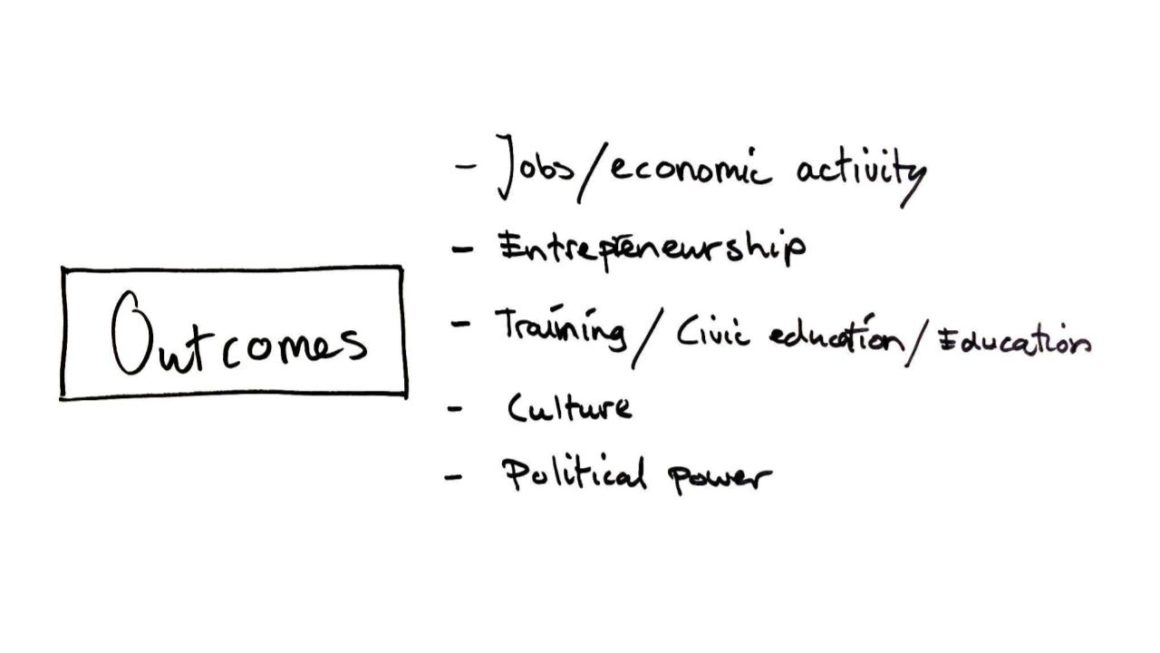 Outcomes
- Jobs/economic activity
- Entrepreneurship
- Training / Civic education / Education
- Culture
- Political power